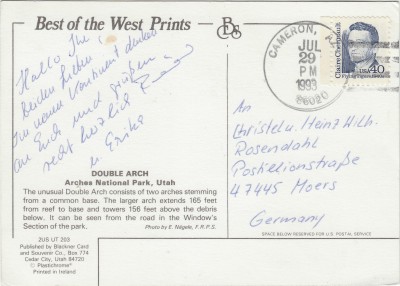 Best of the West Prints
BCS
Hallo Ihr
beiden Lieben
Im neuen Kontinent denken
an Euch und grüßen
recht herzlich
u. Erika
DOUBLE ARCH
Arches National Park, Utah
The unusual Double Arch consists of two arches stemming
from a common base. The larger arch extends 165 feet
from reef to base and towers 156 feet above the debris
below. It can be seen from the road in the Window's
Section of the park.
Photo by E. Négele, F.R.P.S.
2US UT 203
Published by Blackner Card
and Souvenir Co., Box 774
Cedar City, Utah 84720
© Plastichrome®
Printed in Ireland
CAMERON,
JUL
29
PM
1993
86020
Claire Chennault
USA 40
An
Christel u. Heinz Wilh.
Rosendahl
Postillionstraße
47445 Moers
Germany
SPACE BELOW RESERVED FOR U.S. POSTAL SERVICE